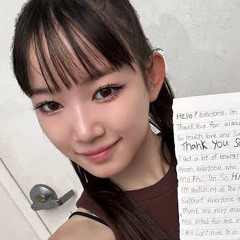 Hello! everyone. I'm
Thank you for always
so much love and su
THANK YOU S
I get a lot of energy
from everyone, who
me I'm So H
I'm watching all the
support everyone
Thank you very mu
who voted for me
I will continue to